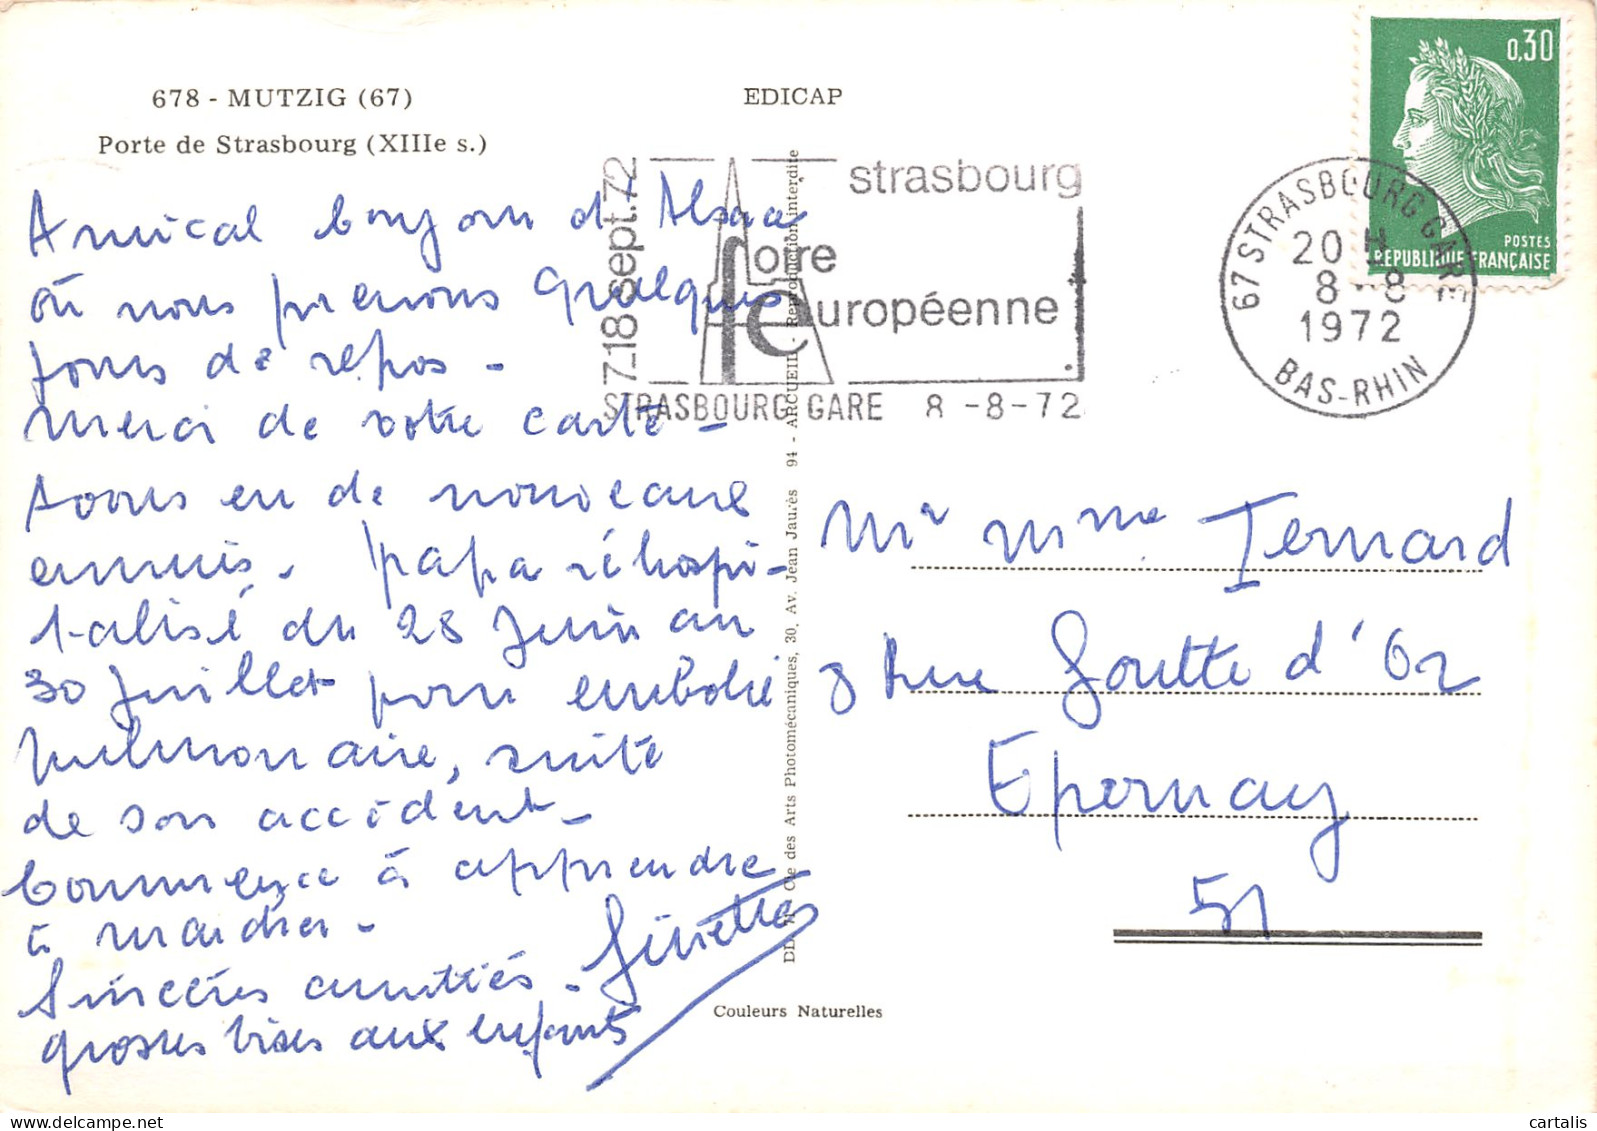 678 - MUTZIG (67)
Porte de Strasbourg (XIIIe s.)
EDICAP
Amical bonjour d'Alsace
où nous prenons quelques
jours de repos -
merci de votre carte -
Avons eu de nouveaux
ennuis. papa réhospi-
talisé du 28 Juin au
30 Juillet pour embolie
pulmonaire, suite
de son accident -
Commence à apprendre
à marcher -
Sincères amitiés -
grosses bises aux enfants
7_18 sept.72
strasbourg
foire
européenne
STRASBOURG GARE 8 -8-72
67 STRASBOURG GARE
20 H
8 - 8
1972
BAS-RHIN
0,30
POSTES
REPUBLIQUE FRANÇAISE
Cie des Arts Photomécaniques, 30, Av. Jean Jaurès 94 - ARCUEIL - Reproduction interdite
Mr Mme Ternard
8 Rue Goutte d'Or
Epernay
51
Couleurs Naturelles
cartalis